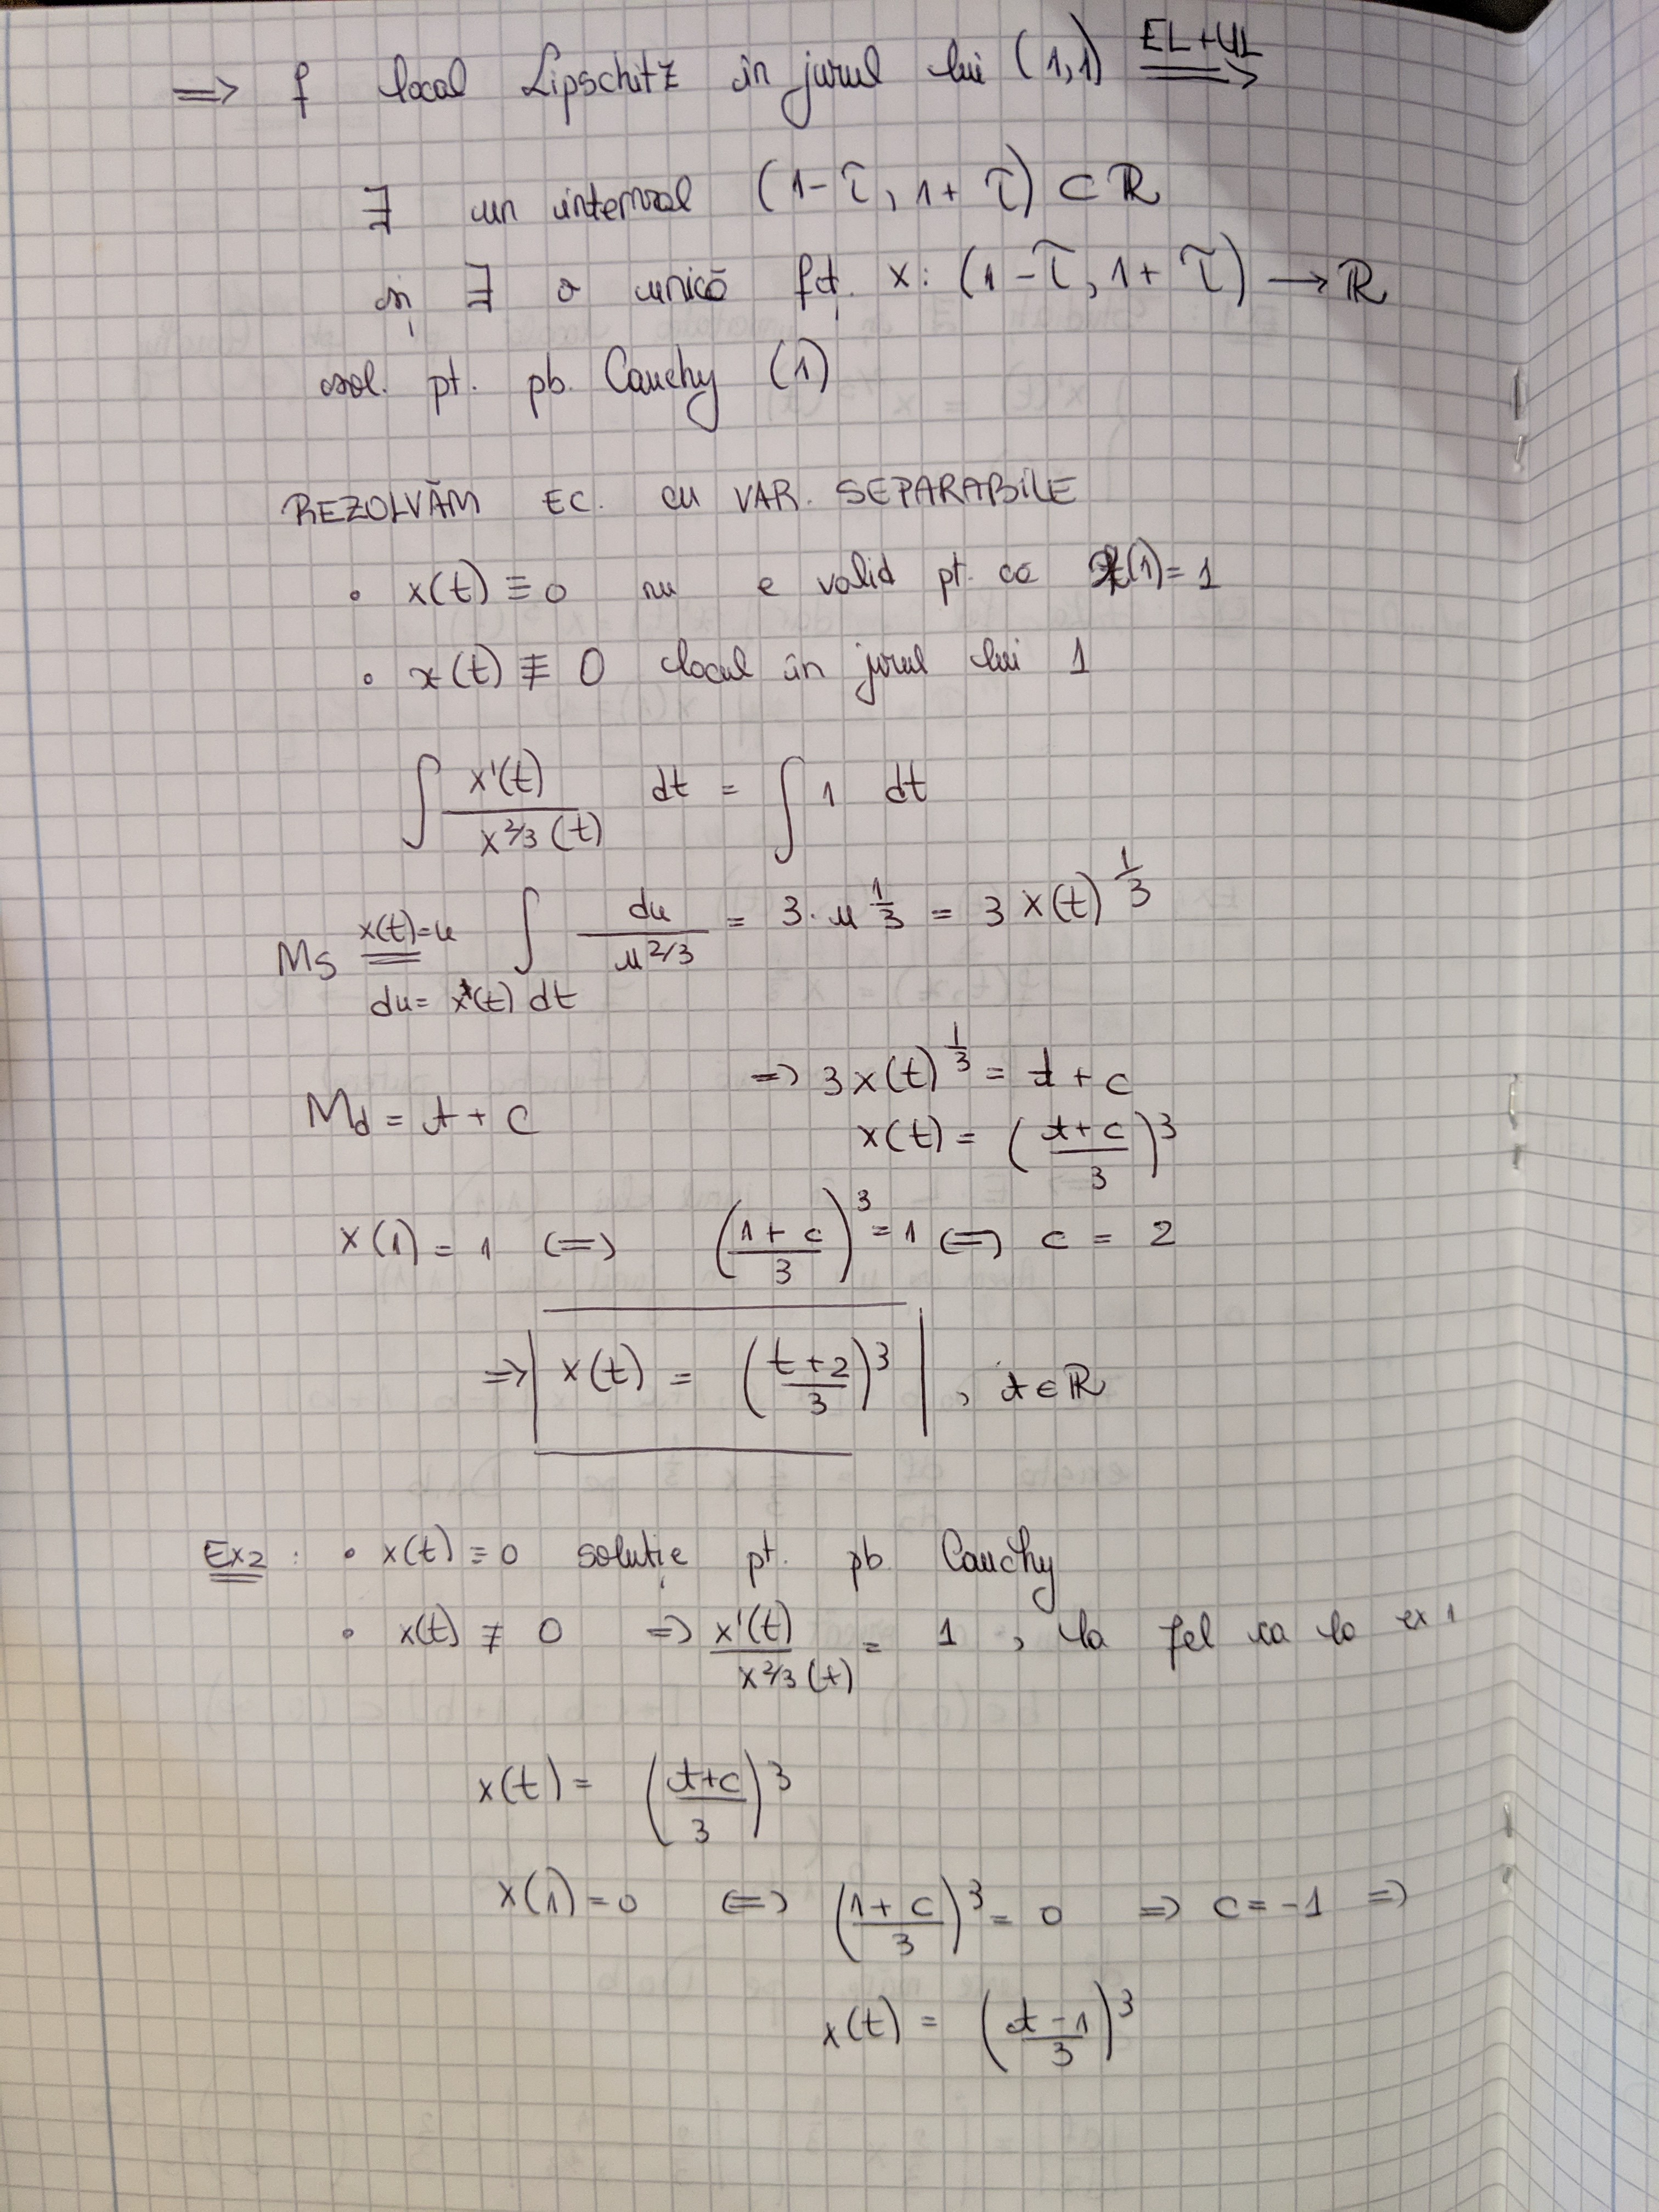 => f local Lipschitz în jurul lui (1,1) EL+UL =>
∃ un interval (1-τ, 1+τ) ⊂ ℝ
și ∃ o unică fct. x: (1-τ, 1+τ) → ℝ
sol. pt. pb. Cauchy (1)
REZOLVĂM EC. CU VAR. SEPARABILE
• x(t) ≡ 0 nu e valid pt. că x(1) = 1
• x(t) ≢ 0 local în jurul lui 1
∫ x'(t) / x^2/3 (t) dt = ∫ 1 dt
Ms x(t)=u ∫ du / u^2/3 = 3·u^1/3 = 3 x(t)^1/3
du = x'(t) dt
=> 3x(t)^1/3 = t + c
Md = t + C
x(t) = (t+c / 3)^3
x(1) = 1 <=> (1+c / 3)^3 = 1 <=> c = 2
=> x(t) = (t+2 / 3)^3 , t ∈ ℝ
Ex2 : • x(t) ≡ 0 soluție pt. pb Cauchy
• x(t) ≢ 0 => x'(t) / x^2/3 (t) = 1 , la fel ca la ex 1
x(t) = (t+c / 3)^3
x(1) = 0 <=> (1+c / 3)^3 = 0 => c = -1 =>
x(t) = (t-1 / 3)^3